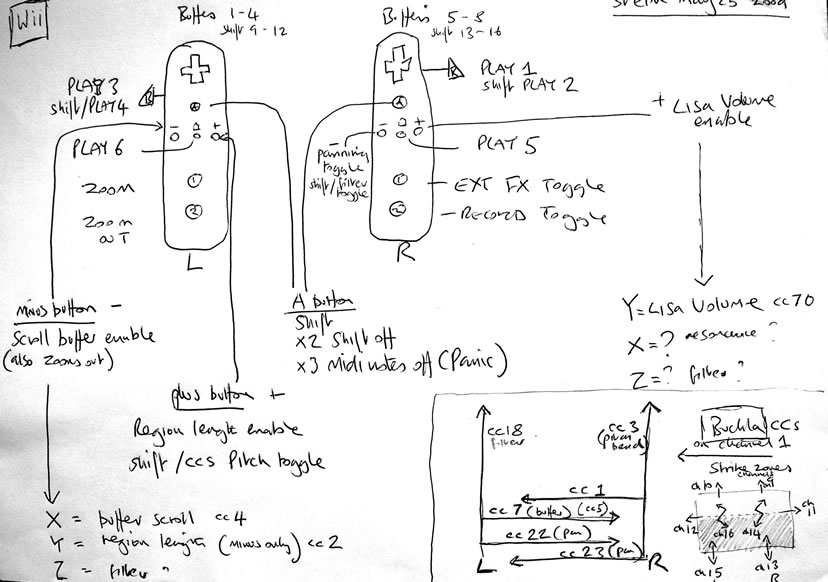 Wii
Buffers 1-4
shift 9-12
Buffers 5-8
shift 13-16
May 25 2009
PLAY 3
shift/PLAY 4
B
A
- +
PLAY 6
ZOOM
1
ZOOM
OUT
2
L
B
PLAY 1
shift PLAY 2
A
- +
panning
toggle
shift/filter
toggle
PLAY 5
1
EXT FX Toggle
2
RECORD Toggle
R
+ LISA Volume
enable
minus button -
Scroll buffer enable
(also zooms out)
A button
Shift
x2 Shift off
x3 Midi notes off (Panic)
Y = LISA Volume cc70
X = ? resonance ?
Z = ? filter ?
plus button +
Region lenght enable
shift / cc5 Pitch toggle
X = buffer scroll cc4
Y = region length (minus only) cc2
Z = filter ?
cc18
filter
cc3
(pitch
bend)
cc1
cc7 (buffer) (cc5)
cc22 (pan)
cc23 (pan)
L
R
Buchla CCs
on channel 1
Strike zones
channels
ch10
ch9
ch11
ch12
ch16
ch14
ch15
ch13
R